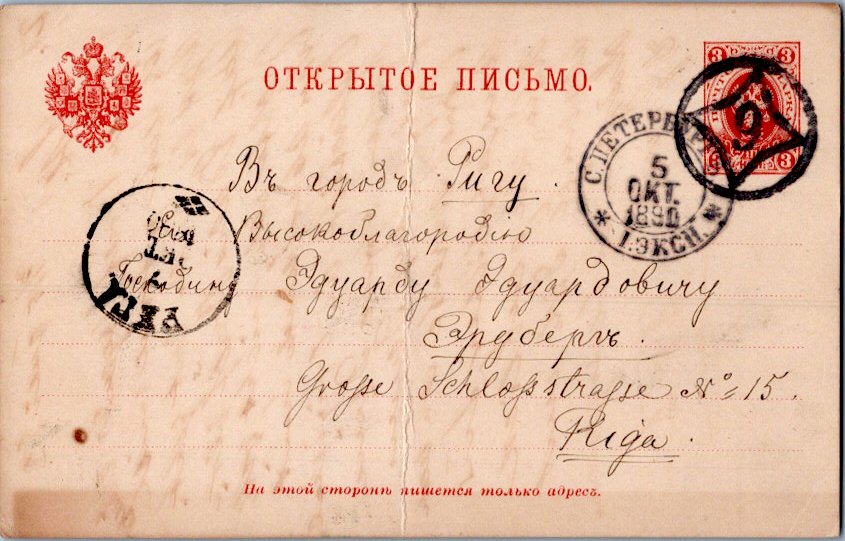 ОТКРЫТОЕ ПИСЬМО.
3 3
9
3 3
С. ПЕТЕРБУРГЪ
5
ОКТ.
1890
1. ЭКСП.
Въ городъ Ригу.
Его Высокоблагородію
Господину Эдуарду Эдуардовичу
Эрдбергъ.
Grosse Schloßstrasse No 15.
Riga.
РИГА
На этой сторонѣ пишется только адресъ.